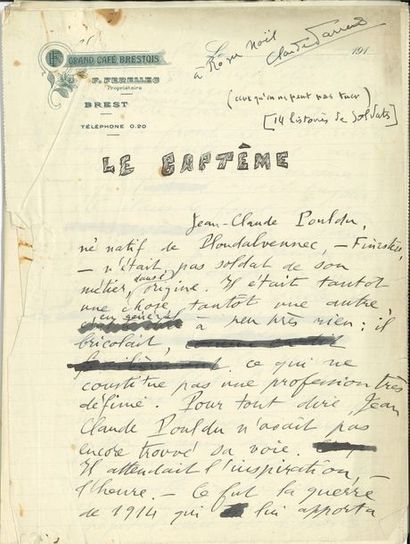 GRAND CAFÉ BRESTOIS
F. FERELLEC
Propriétaire
BREST
TÉLÉPHONE 0.20
Le 191
à Roger Noël
Claude Farrère
(ceux qu'on ne peut pas tuer)
[14 histoires de Soldats]
LE BAPTÊME
Jean-Claude Pouldu,
né natif de Ploudalvennec, – Finistère,
– n'était pas soldat de son
métier, dans l'origine. Il était tantôt
une chose, tantôt une autre,
en général
à peu près rien : il
bricolait,
ce qui ne
constitue pas une profession très
définie. Pour tout dire, Jean
Claude Pouldu n'avait pas
encore trouvé sa voie.
Il attendait l'inspiration, –
l'heure. – Ce fut la guerre
de 1914 qui lui apporta